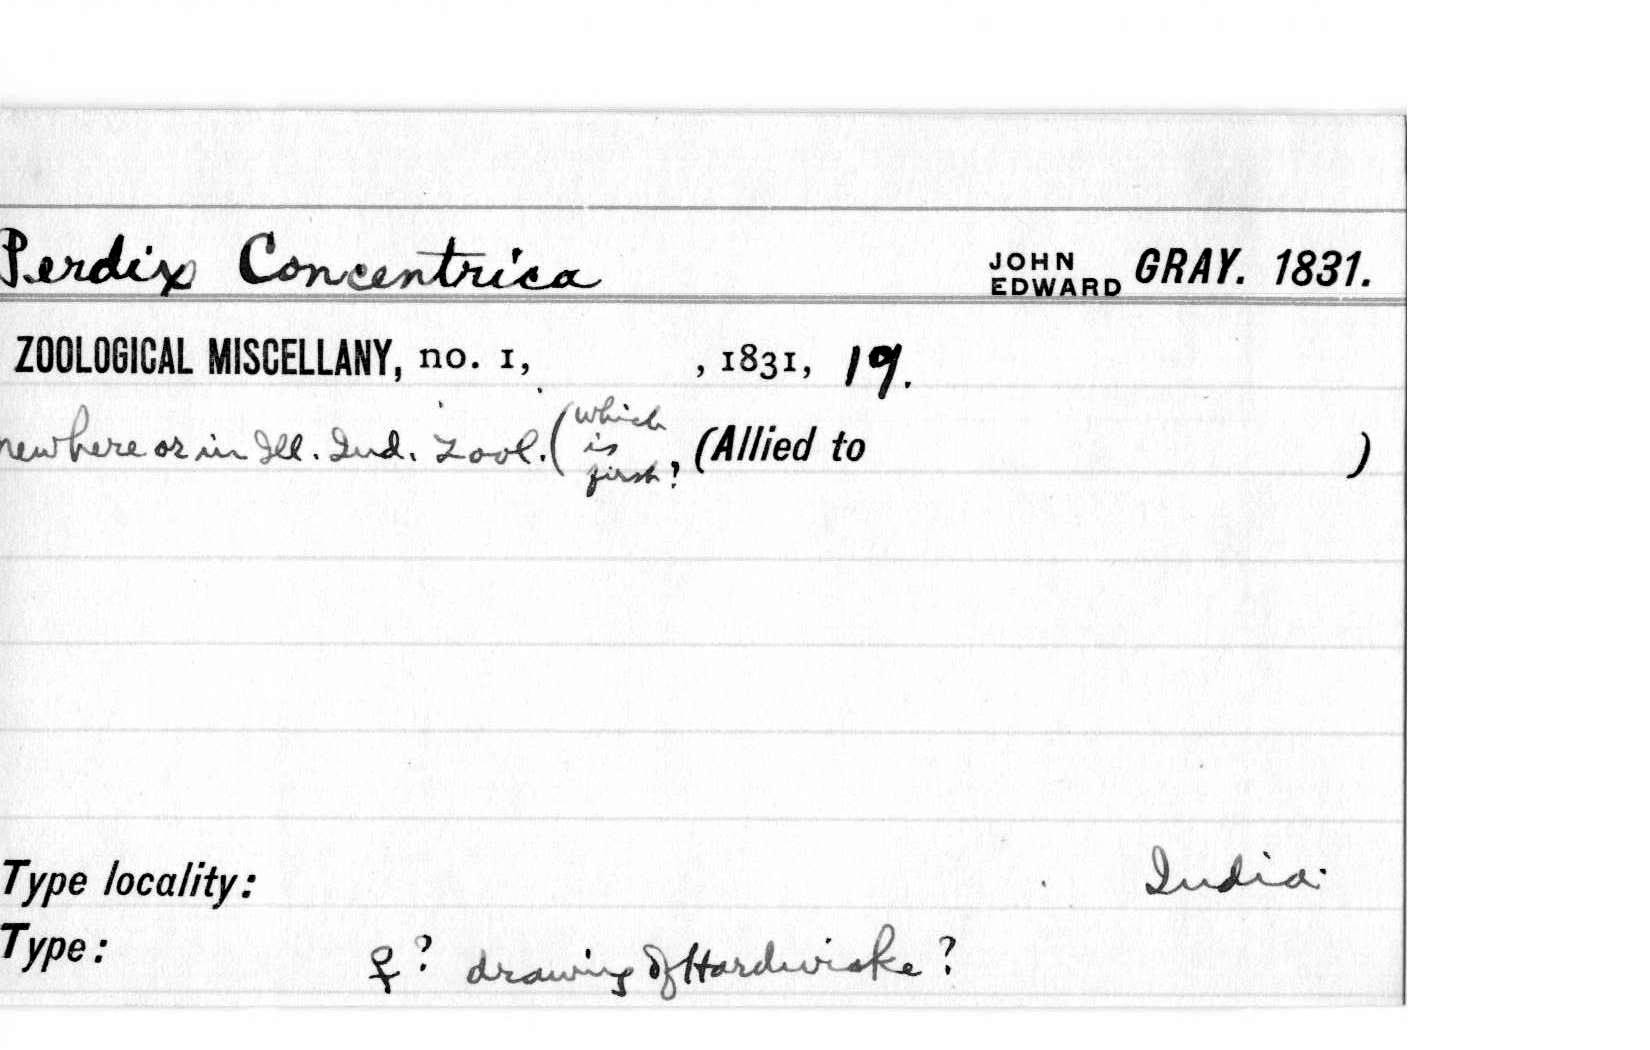 Perdix Concentrica JOHN EDWARD GRAY. 1831.
ZOOLOGICAL MISCELLANY, no. 1, , 1831, 19.
new here or in Ill. Ind. Zool. (which is first? (Allied to )
Type locality: India.
Type: ♀? drawing of Hardwicke?